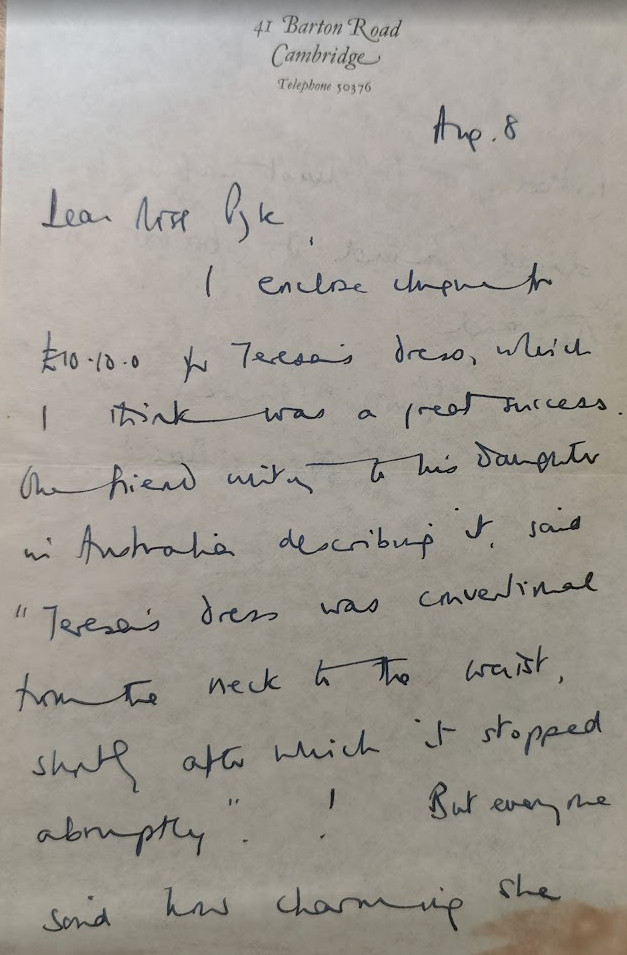 41 Barton Road
Cambridge
Telephone 50376
Aug. 8
Dear Miss Pyk,
I enclose cheque for
£10-10.0 for Teresa's dress, which
I think was a great success.
One friend writing to his daughter
in Australia describing it, said
"Teresa's dress was conventional
from the neck to the waist,
shortly after which it stopped
abruptly". ! But everyone
said how charming she